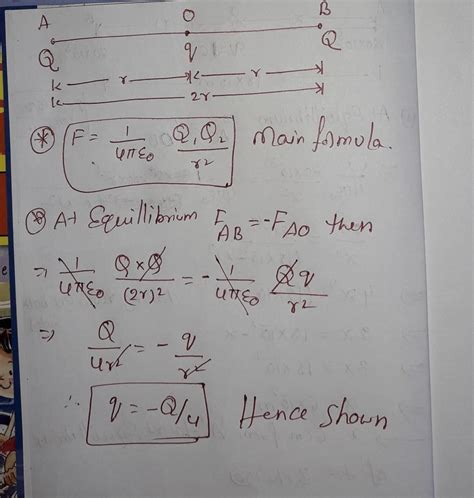 A O B
Q q Q
r r
2r
* F = 1/4πε0 Q1Q2/r² Main formula.
* At Equillibrium F_AB = -F_AO then
⇒ 1/4πε0 Q×Q/(2r)² = - 1/4πε0 Qq/r²
⇒ Q/4r² = - q/r²
∴ q = -Q/4 Hence shown